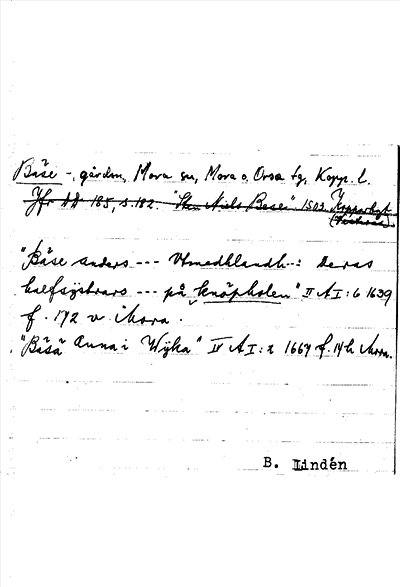 Båse -, gården, Mora sn, Mora o. Orsa tg, Kopp. l.
Jfr DD 165, s. 182. "Sten Niels Base" 1503 Kopparbgt.
"Båse anders --- Utmedhlandh--: deras
halfsijstrars --- på knäpholen" II A I:6 1639
f. 172 v Mora.
"Båsä Anna i Wijka" IV A I:2 1667 f. 14 h Mora.
B. Lindén